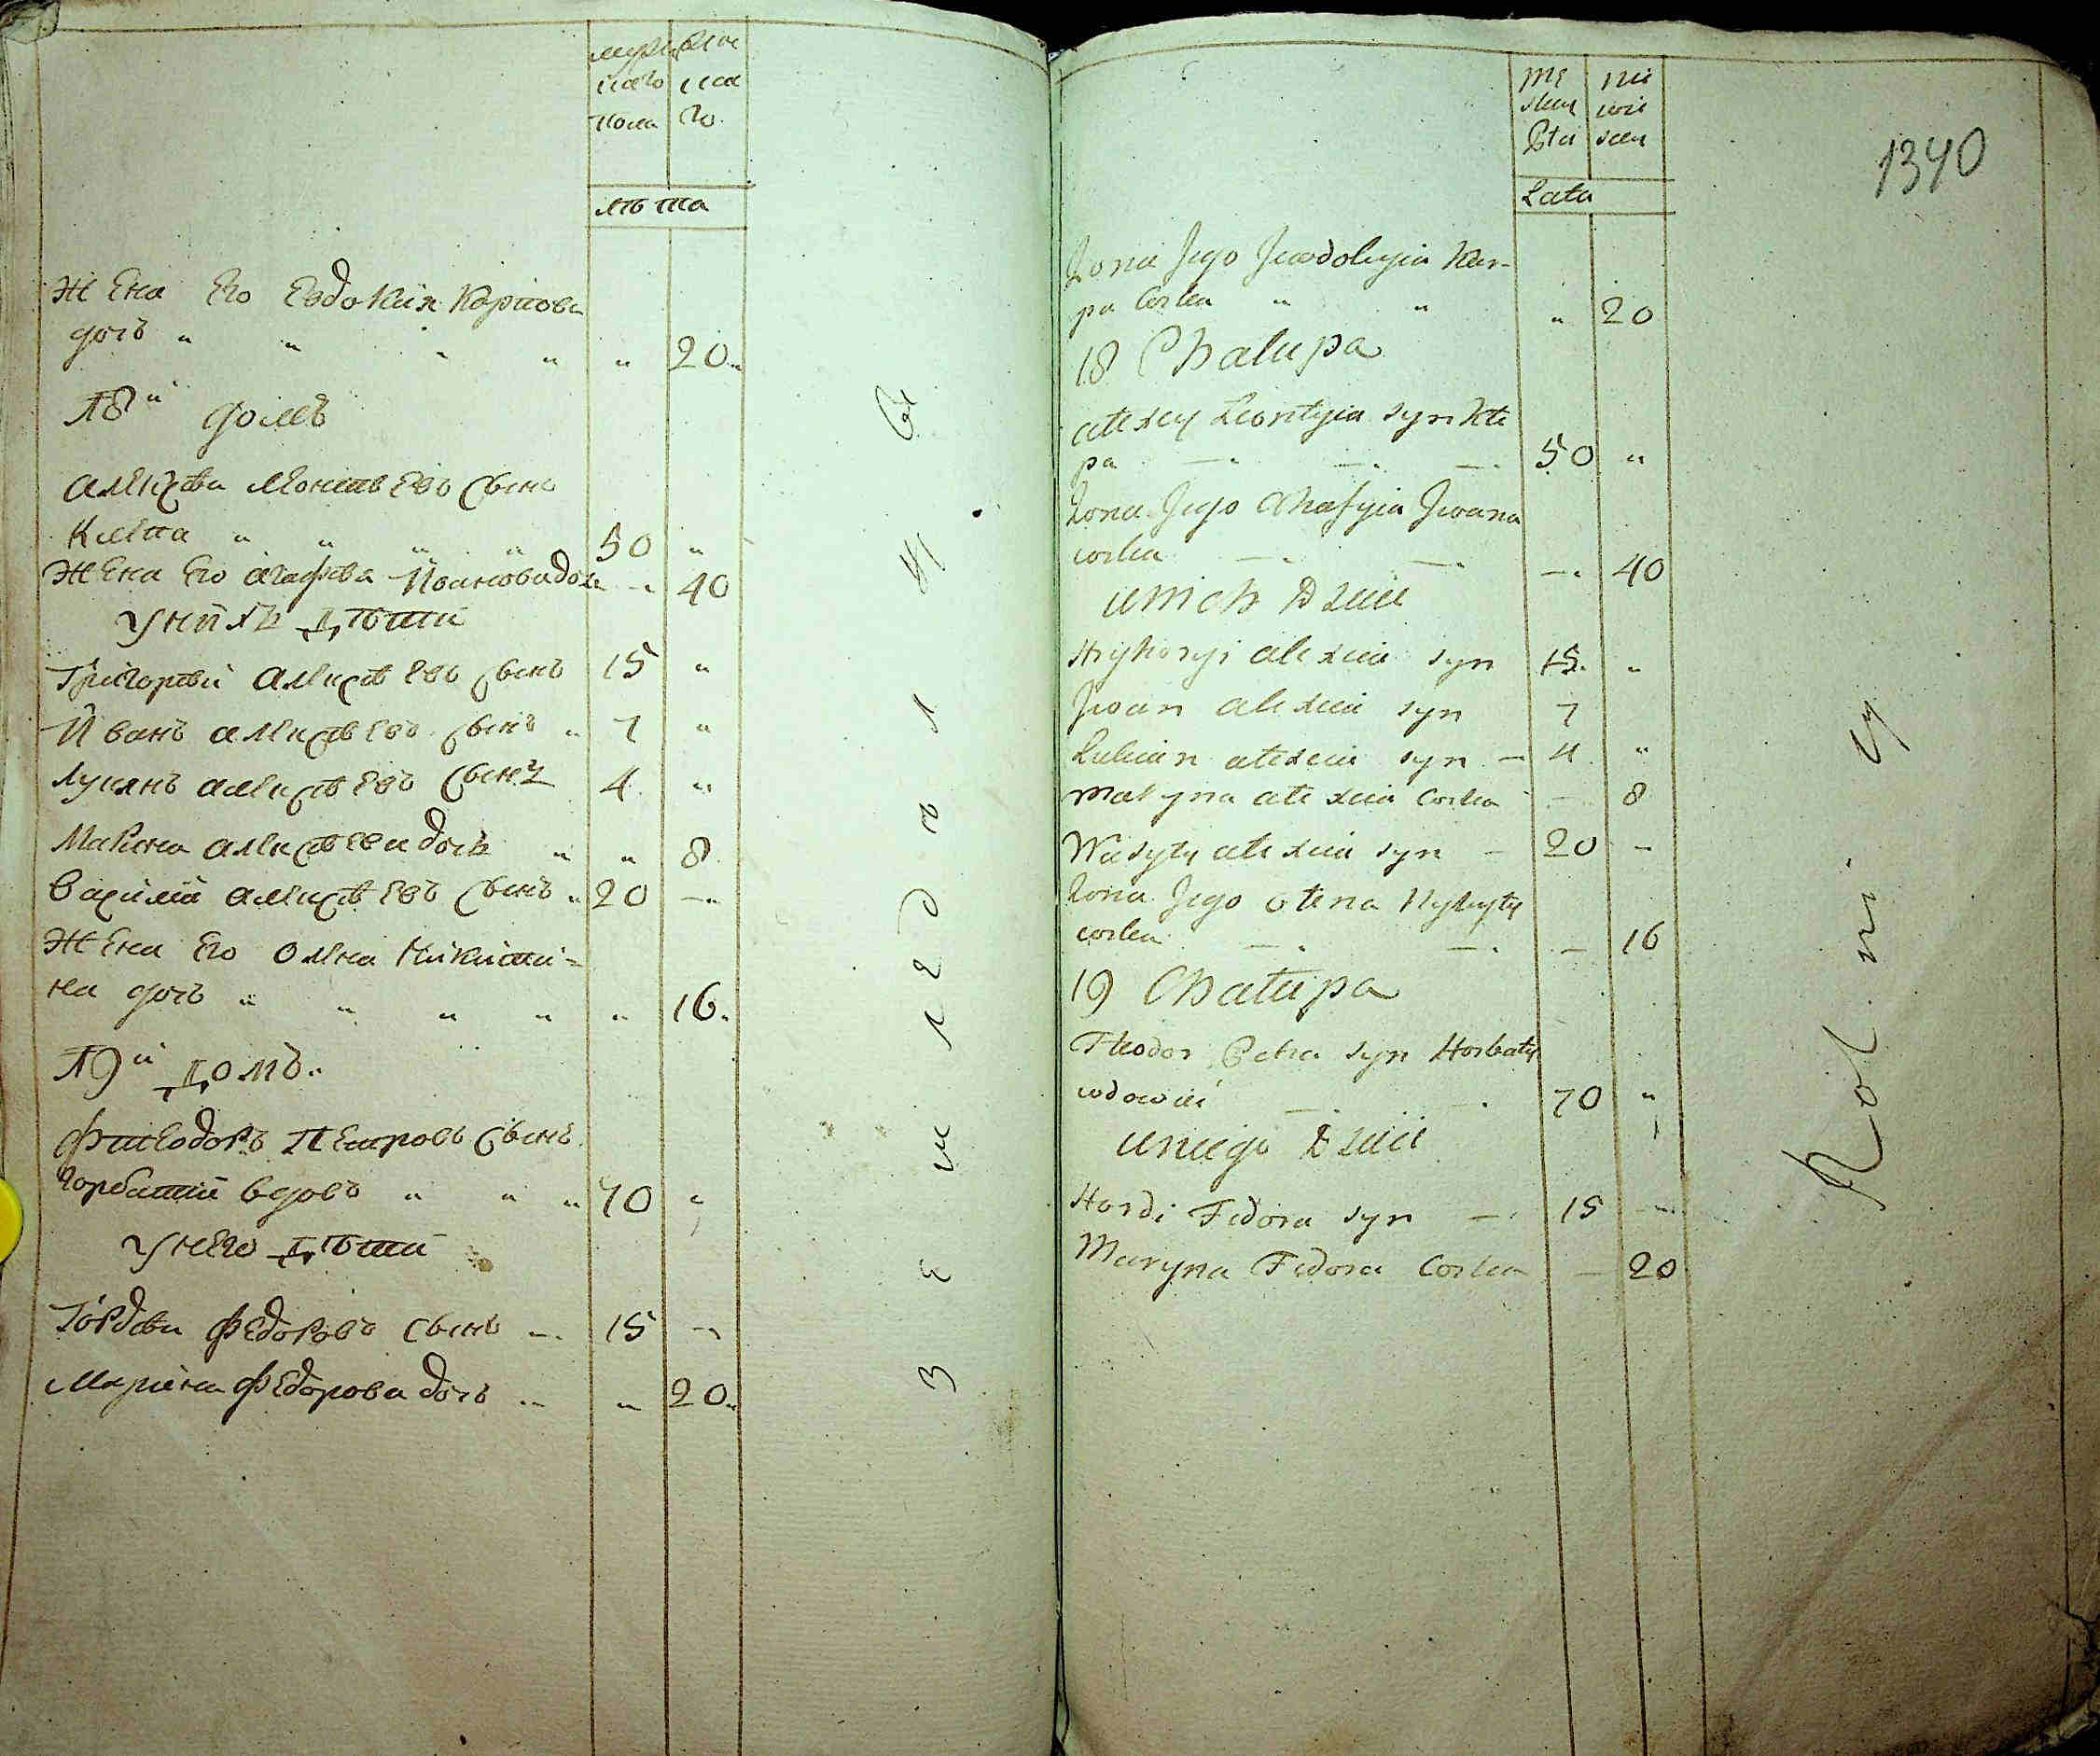 мужес скаго пола
женс ка го
лѣта
Жена Его Евдокия Карпова
дочь " " " " " 20 "
18й домъ
Алексѣй Леонтьевъ сынъ
Клепа " " " " 50 "
Жена Его Агафия Иванова дочь — 40
У нихъ Дѣти
Григорий Алексѣевъ сынъ 15 "
Иванъ Алексѣевъ сынъ " 7 "
Лукянъ Алексѣевъ сынъ 4 "
Макрина Алексѣева дочь " " 8
Василий Алексѣевъ сынъ " 20 —
Жена Его Олена Никити=
на дочь " " " " " 16 "
19й Домъ "
Фтеодоръ Петровъ сынъ
Горбатий вдовъ " " " 70 "
У него Дѣти
Гордѣй Федоровъ сынъ — 15 —
Марина Федорова дочь " " 20 "
Землевладѣ
1340
Mę skey Płci
Nie wie sciey
Lata
Żona Jego Jewdokyia Kar-
pa Corka " " " 20
18 Chałupa
Alexey Leontyia syn Kle
pa — — — 50 "
Żona Jego Ahafyia Jwana
corka — — — 40
u nich Dzieci
Hryhoryi Alexeia syn 15 "
Jwan Alexeia syn 7
Łukian Alexeia syn — 4 "
Makryna Alexeia Corka — 8
Wasyly Alexeia syn — 20 —
Żona Jego Olena Nykyty
corka — — — 16
19 Chałupa
Fteodor Petra syn Horbaty
wdowiec — — 70 "
u niego Dzieci
Hordi Fedora syn — 15 —
Maryna Fedora Corka — 20
Rol ni cy